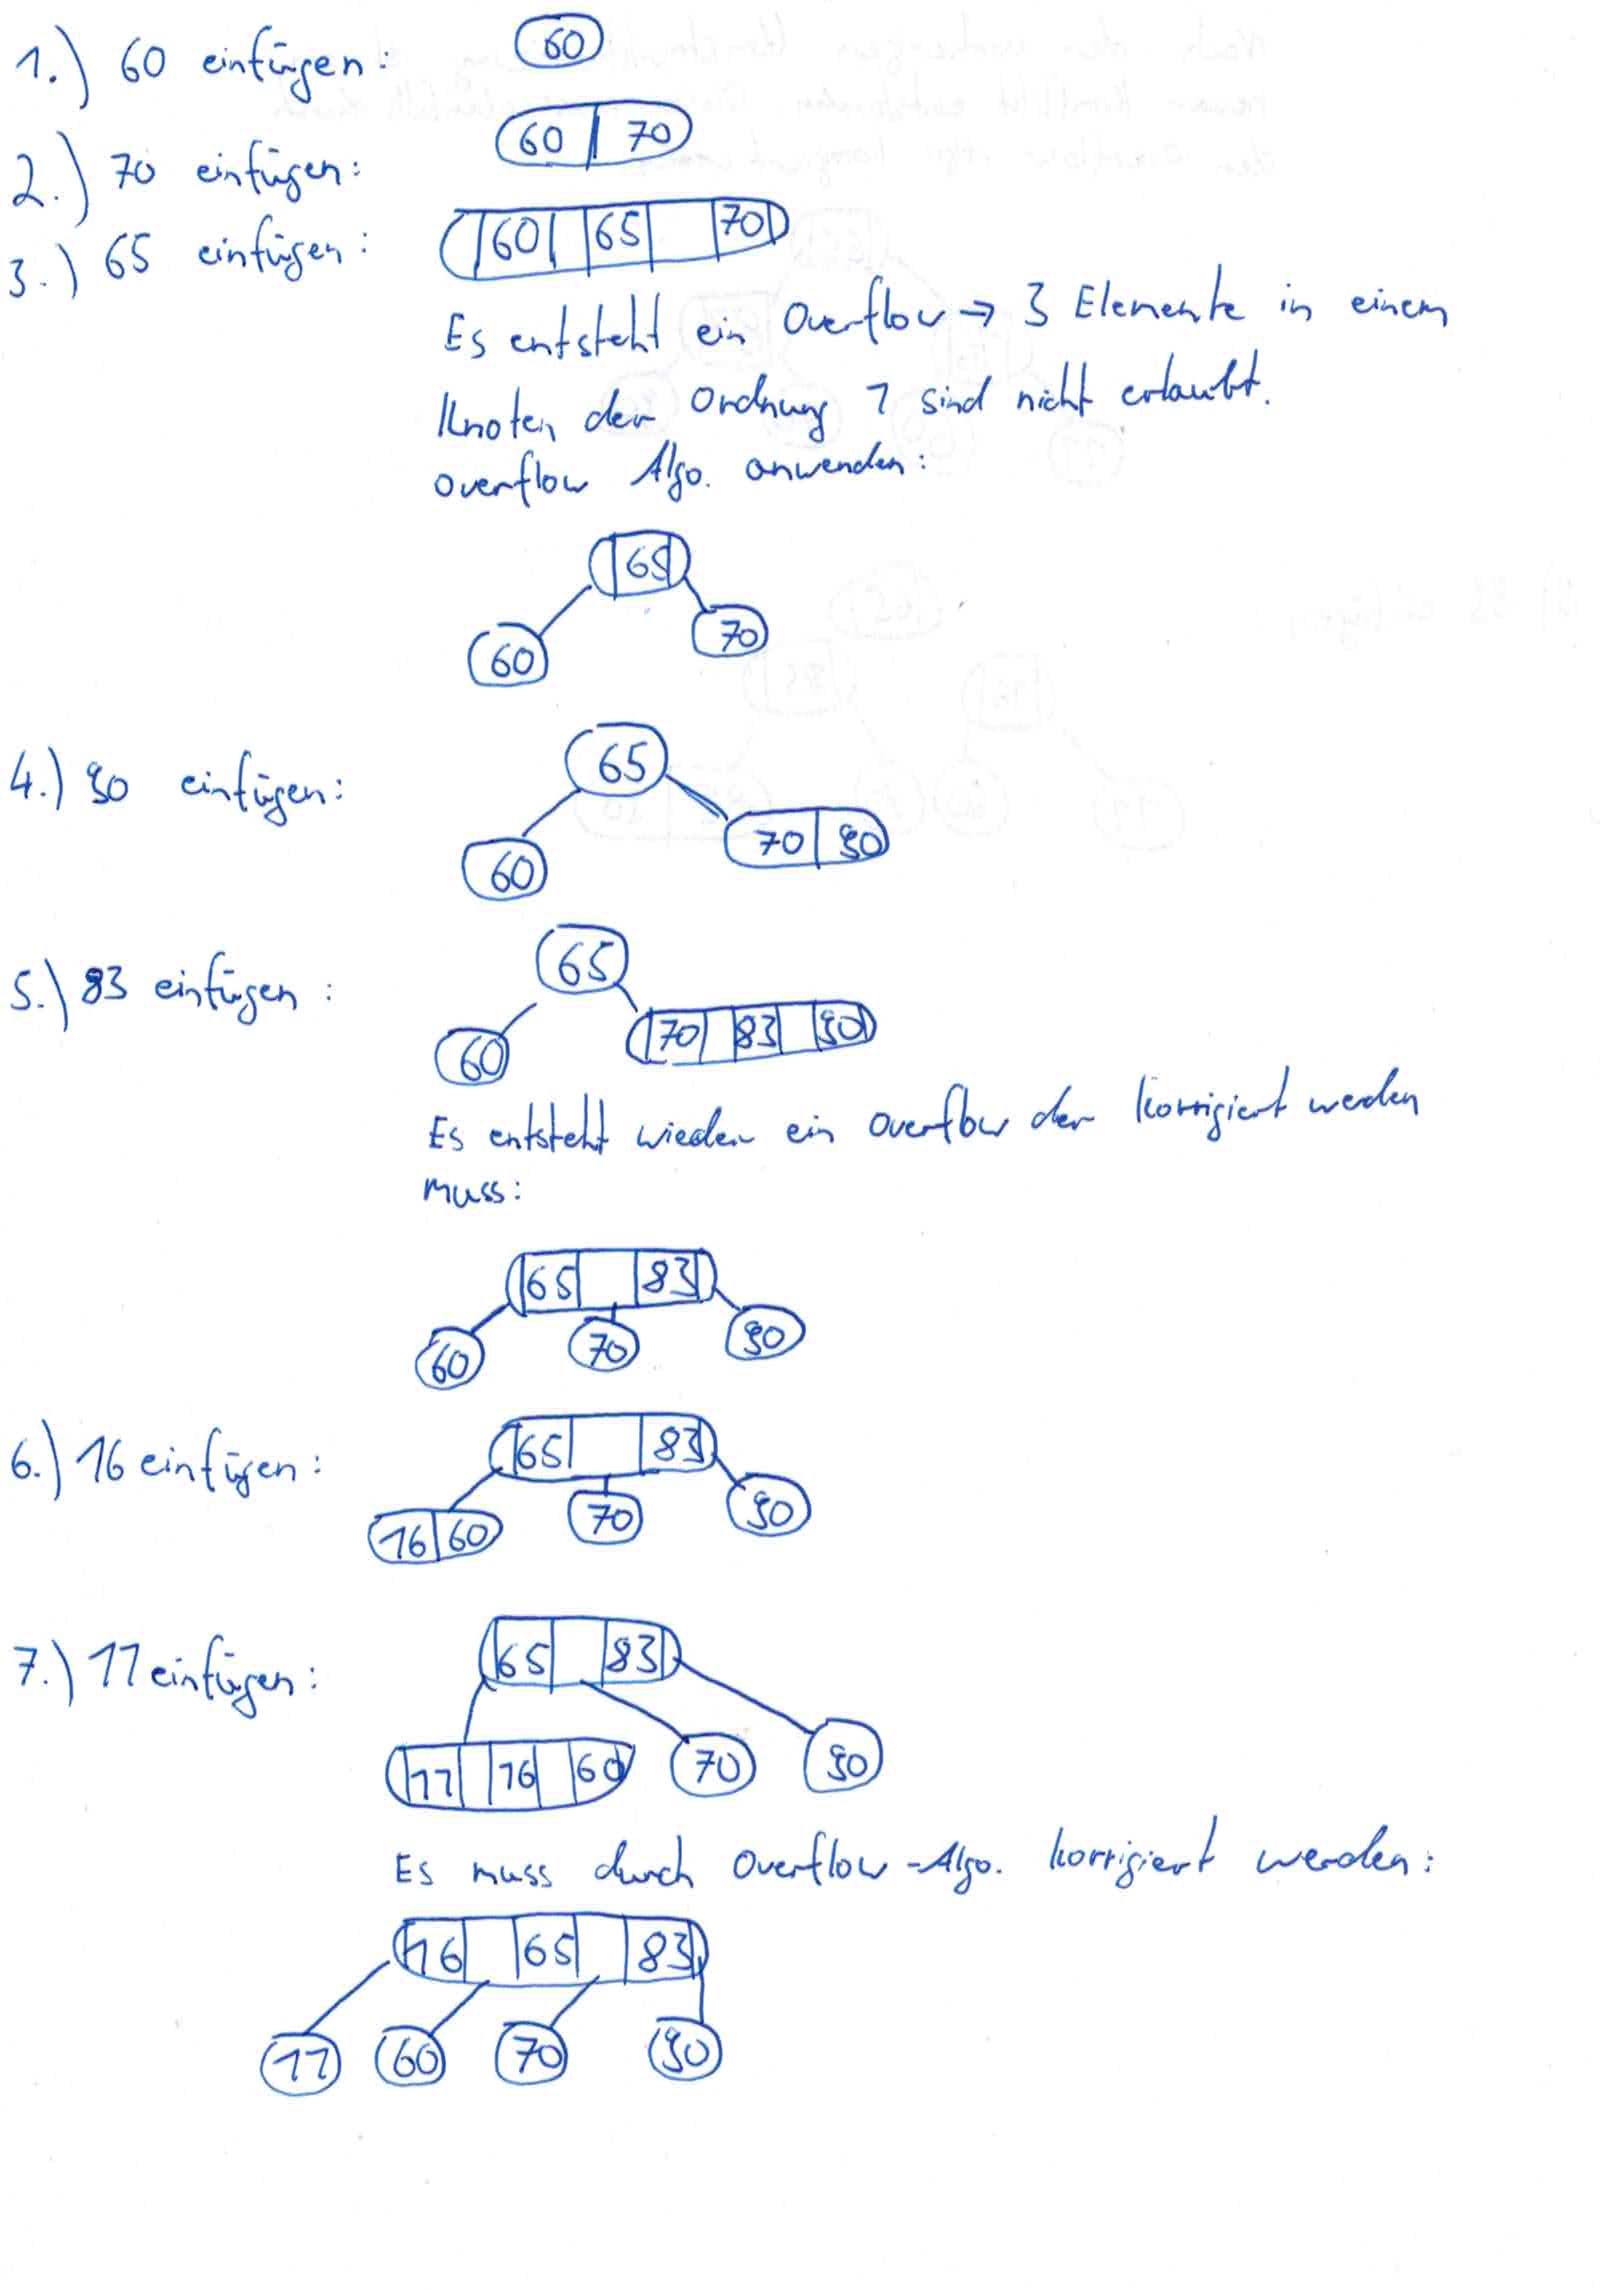 1.) 60 einfügen: 60
2.) 70 einfügen: 60 70
3.) 65 einfügen: 60 65 70
Es entsteht ein Overflow → 3 Elemente in einem
Knoten der Ordnung 1 sind nicht erlaubt.
Overflow Algo. anwenden:
65
60 70
4.) 90 einfügen: 65
60 70 90
5.) 83 einfügen: 65
60 70 83 90
Es entsteht wieder ein Overflow der korrigiert werden
muss:
65 83
60 70 90
6.) 16 einfügen: 65 83
16 60 70 90
7.) 11 einfügen: 65 83
11 16 60 70 90
Es muss durch Overflow-Algo. korrigiert werden:
16 65 83
11 60 70 90